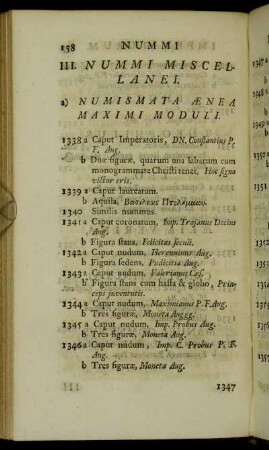 158 NUMMI
III. NUMMI MISCEL-
LANEI.
a) NUMISMATA ÆNEA
MAXIMI MODULI.
1338 a Caput Imperatoris, DN. Constantius P.
F. Aug.
b Duæ figuræ, quarum una labarum cum
monogrammate Christi tenet, Hoc signo
victor eris.
1339 a Caput laureatum.
b Aquila, Βασιλεως Πτολεμαιου.
1340 Similis nummus.
1341 a Caput coronatum, Imp. Trajanus Decius
Aug.
b Figura stans, Felicitas seculi.
1342 a Caput nudum, Herennius Aug.
b Figura sedens, Pudicitia Aug.
1343 a Caput nudum, Valerianus Cæs.
b Figura stans cum hasta & globo, Prin-
ceps juventutis.
1344 a Caput nudum, Maximianus P. F. Aug.
b Tres figuræ, Moneta Augg.
1345 a Caput nudum, Imp. Probus Aug.
b Tres figuræ, Moneta Aug.
1346 a Caput nudum, Imp. C. Probus P. F.
Aug.
b Tres figuræ, Moneta Aug.
1347